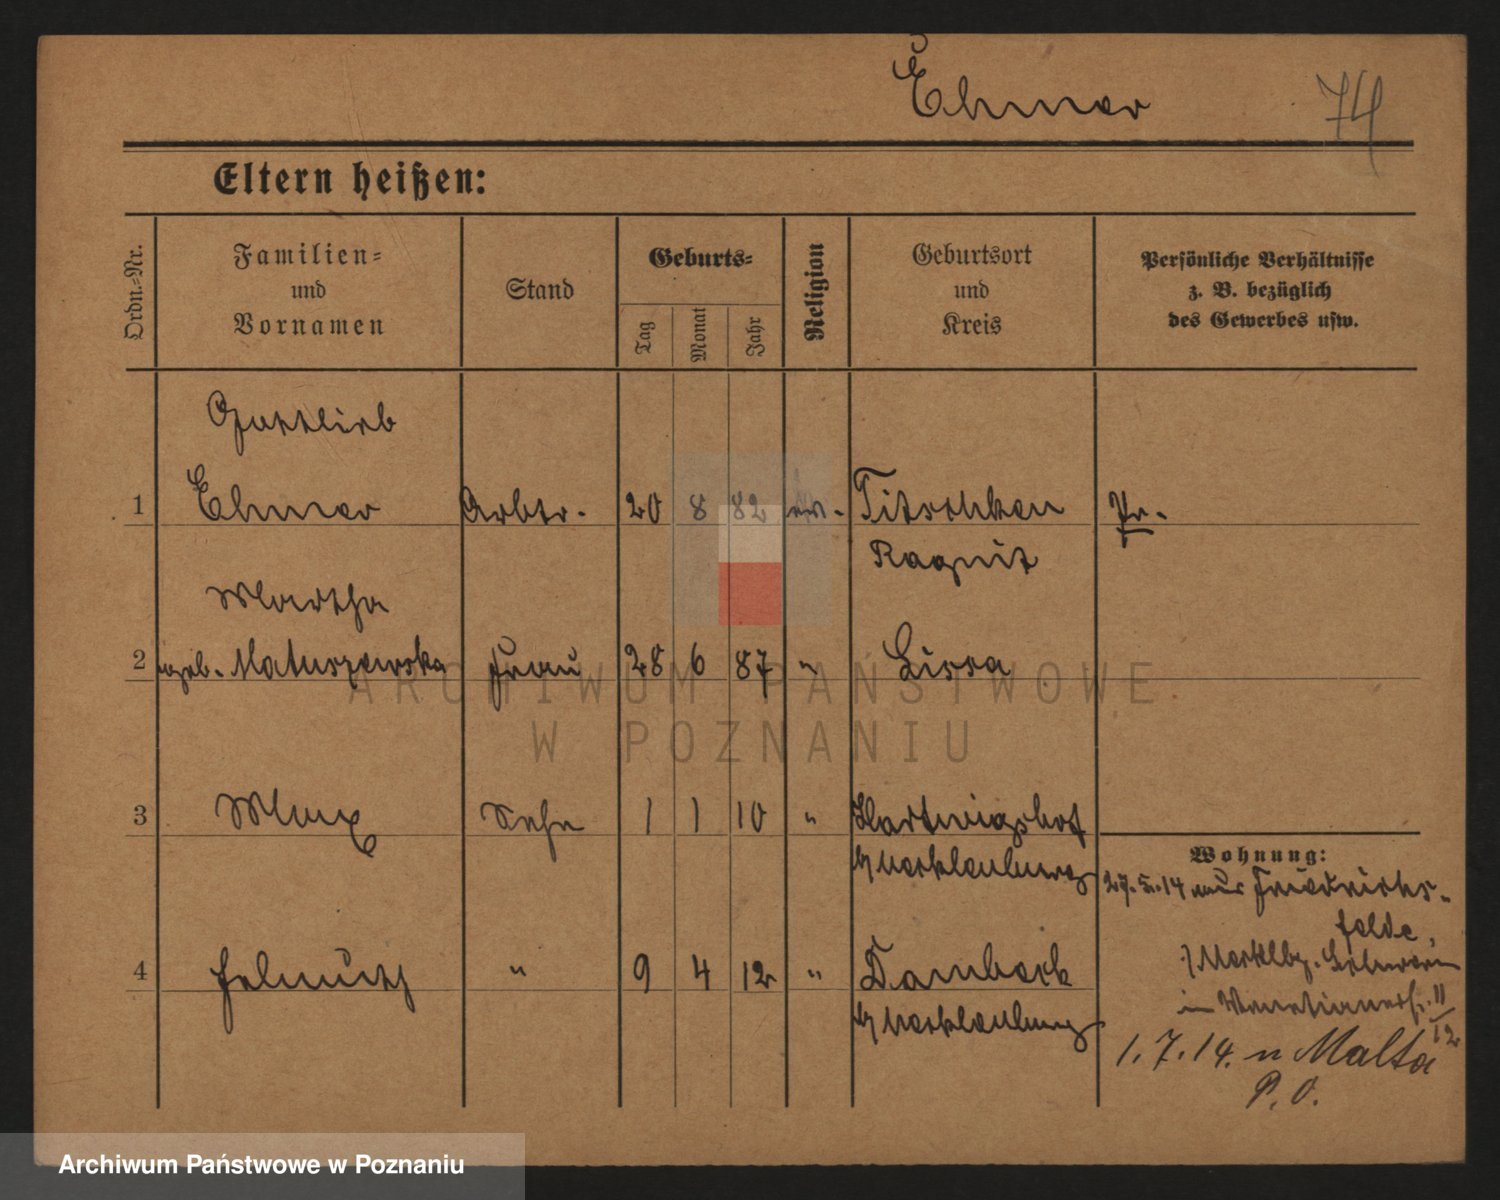 Ehmer
74
Eltern heißen:
Ordn.-Nr.
Familien-
und
Vornamen
Stand
Geburts-
Tag
Monat
Jahr
Religion
Geburtsort
und
Kreis
Persönliche Verhältnisse
z. B. bezüglich
des Gewerbes usw.
Gottlieb
1 Ehmer Arbtr. 20 8 82 ev. Titschken Pr.
Ragnit
Martha
2 geb. Matuszewska Frau 28 6 87 " Lissa
3 Max Sohn 1 1 10 " Hartwigshof
Mecklenburg
Wohnung:
27.5.14 aus Friedrichs-
felde,
4 Helmuth " 9 4 12 " Dambeck
Mecklbg. Schwerin
Mecklenburg
in Venetianerstr. 11/12
1.7.14. n Malta
P. O.
ARCHIWUM PAŃSTWOWE
W POZNANIU
Archiwum Państwowe w Poznaniu